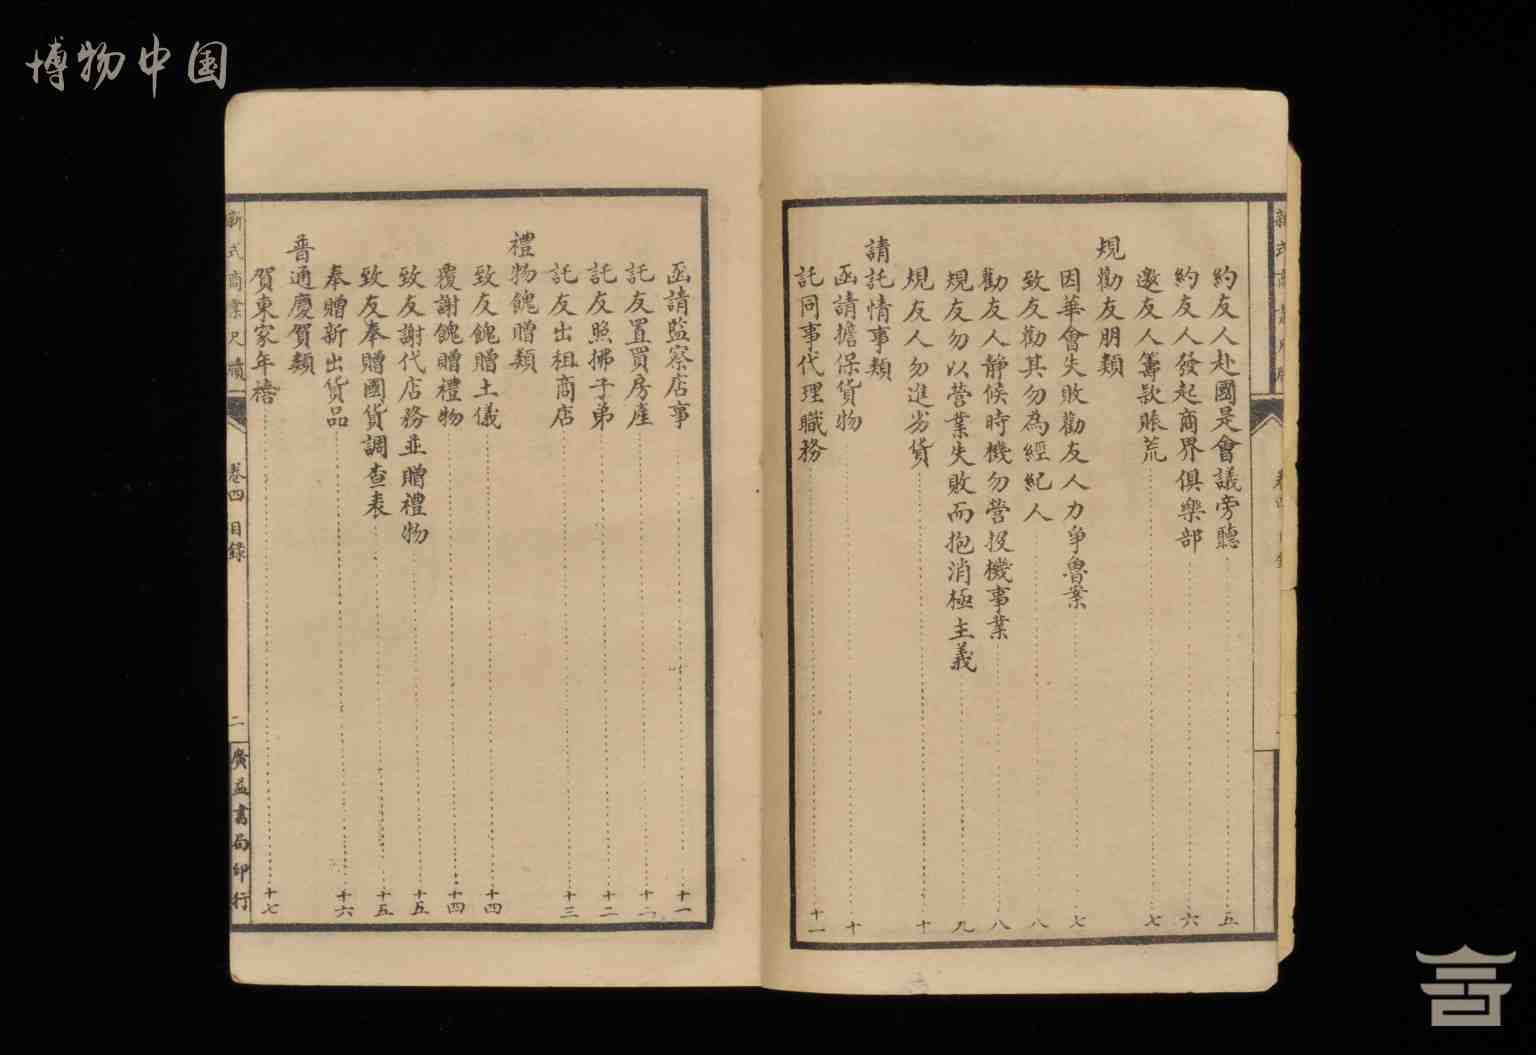 博物中国
新式商業尺牘
卷四
目錄
約友人赴國是會議旁聽 五
約友人發起商界俱樂部 六
邀友人籌款賑荒 七
規勸友朋類
因華會失敗勸友人力爭魯案 七
致友勸其勿為經紀人 八
勸友人靜候時機勿營投機事業 八
規友勿以營業失敗而抱消極主義 九
規友人勿進劣貨 十
請託情事類
函請擔保貨物 十
託同事代理職務 十一
函請監察店事 十一
託友置買房產 十二
託友照拂子弟 十二
託友出租商店 十三
禮物餽贈類
致友餽贈土儀 十四
覆謝餽贈禮物 十四
致友謝代店務並贈禮物 十五
致友奉贈國貨調查表 十五
奉贈新出貨品 十六
普通慶賀類
賀東家年禧 十七
新式商業尺牘
卷四 目錄
二
廣益書局印行